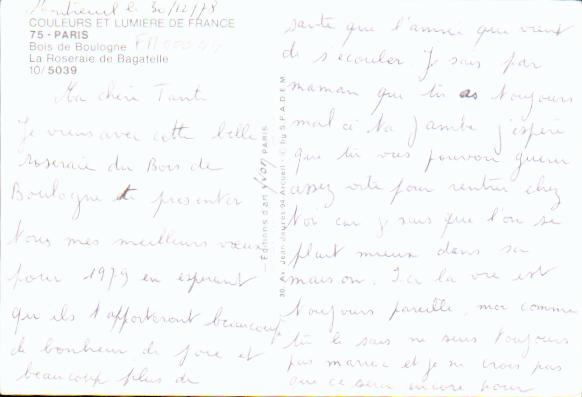 Montreuil le 30/12/78
COULEURS ET LUMIERE DE FRANCE
75 - PARIS
Bois de Boulogne
La Roseraie de Bagatelle
10/5039
Ma chère Tante
Je viens avec cette belle
roseraie du Bois de
Boulogne te présenter
tous mes meilleurs vœux
pour 1979 en esperant
qu'ils t'apporteront beaucoup
de bonheur, de joie et
beaucoup plus de
Editions d'art Yvon PARIS
30, Av. Jean-Jaurès 94 Arcueil - © by S.P.A.D.E.M.
santé que l'année qui vient
de s'ecouler. Je sais par
maman que tu as toujours
mal a ta jambe j'espère
que tu vas pouvoir guerir
assez vite pour rentrer chez
toi car je sais que l'on se
plait mieux dans sa
maison. Ici la vie est
toujours pareille, moi comme
tu le sais ne suis toujours
pas mariée et je ne crois pas
que ce sera encore pour